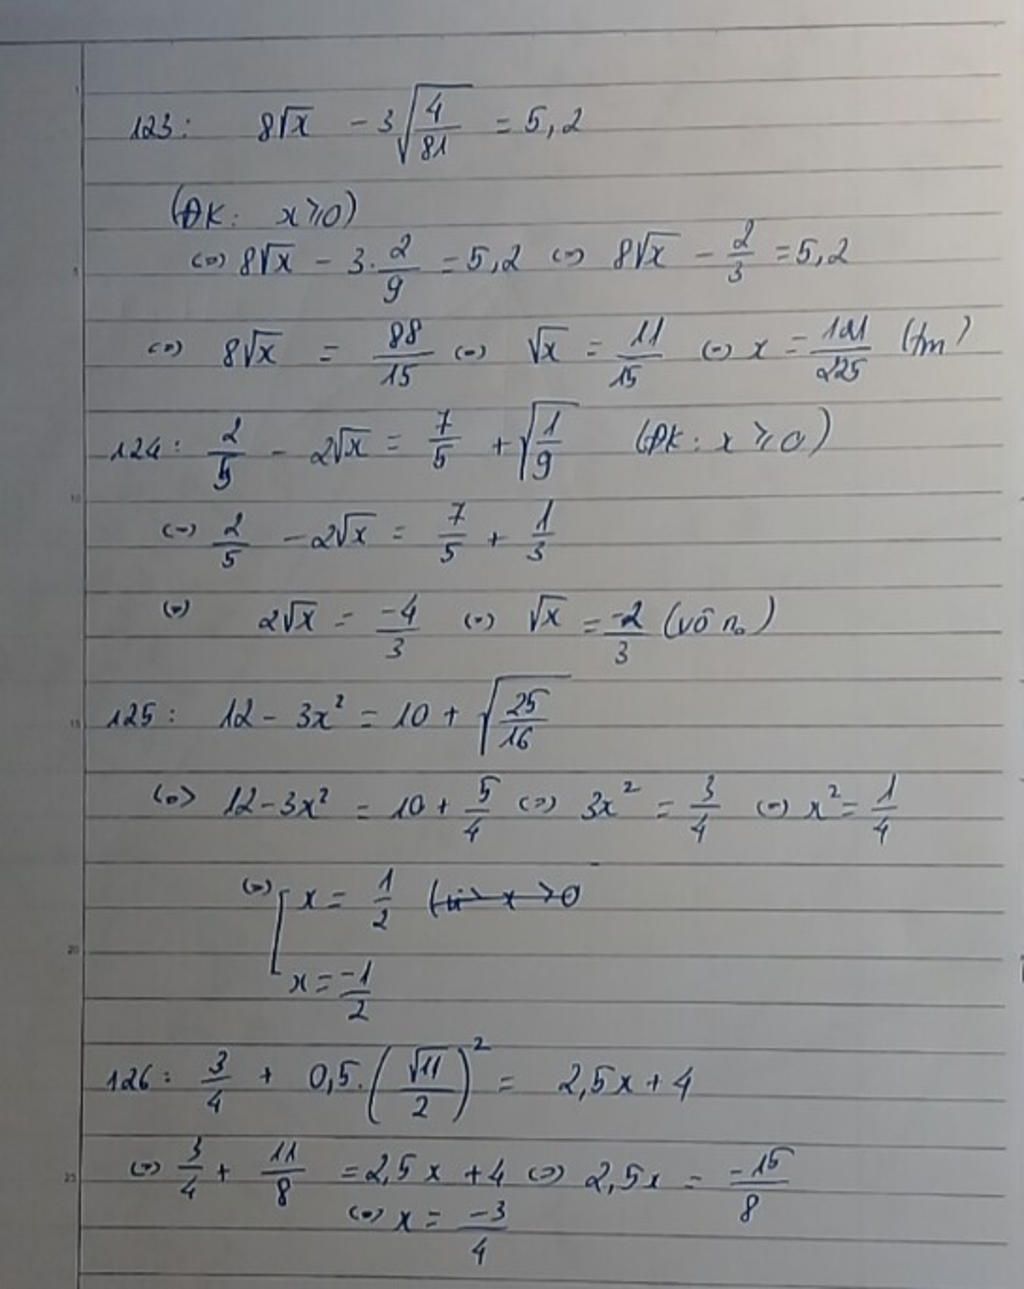 123: 8√x - 3√(4/81) = 5,2
(ĐK: x ≥ 0)
<=> 8√x - 3.2/9 = 5,2 <=> 8√x - 2/3 = 5,2
<=> 8√x = 88/15 <=> √x = 11/15 <=> x = 121/225 (tm)
124: 2/5 - 2√x = 7/5 + √(1/9) (ĐK: x ≥ 0)
<=> 2/5 - 2√x = 7/5 + 1/3
<=> 2√x = -4/3 <=> √x = -2/3 (vô no)
125: 12 - 3x² = 10 + √(25/16)
<=> 12 - 3x² = 10 + 5/4 <=> 3x² = 3/4 <=> x² = 1/4
<=> [ x = 1/2
x = -1/2
126: 3/4 + 0,5.(√11/2)² = 2,5x + 4
<=> 3/4 + 11/8 = 2,5x + 4 <=> 2,5x = -15/8
<=> x = -3/4